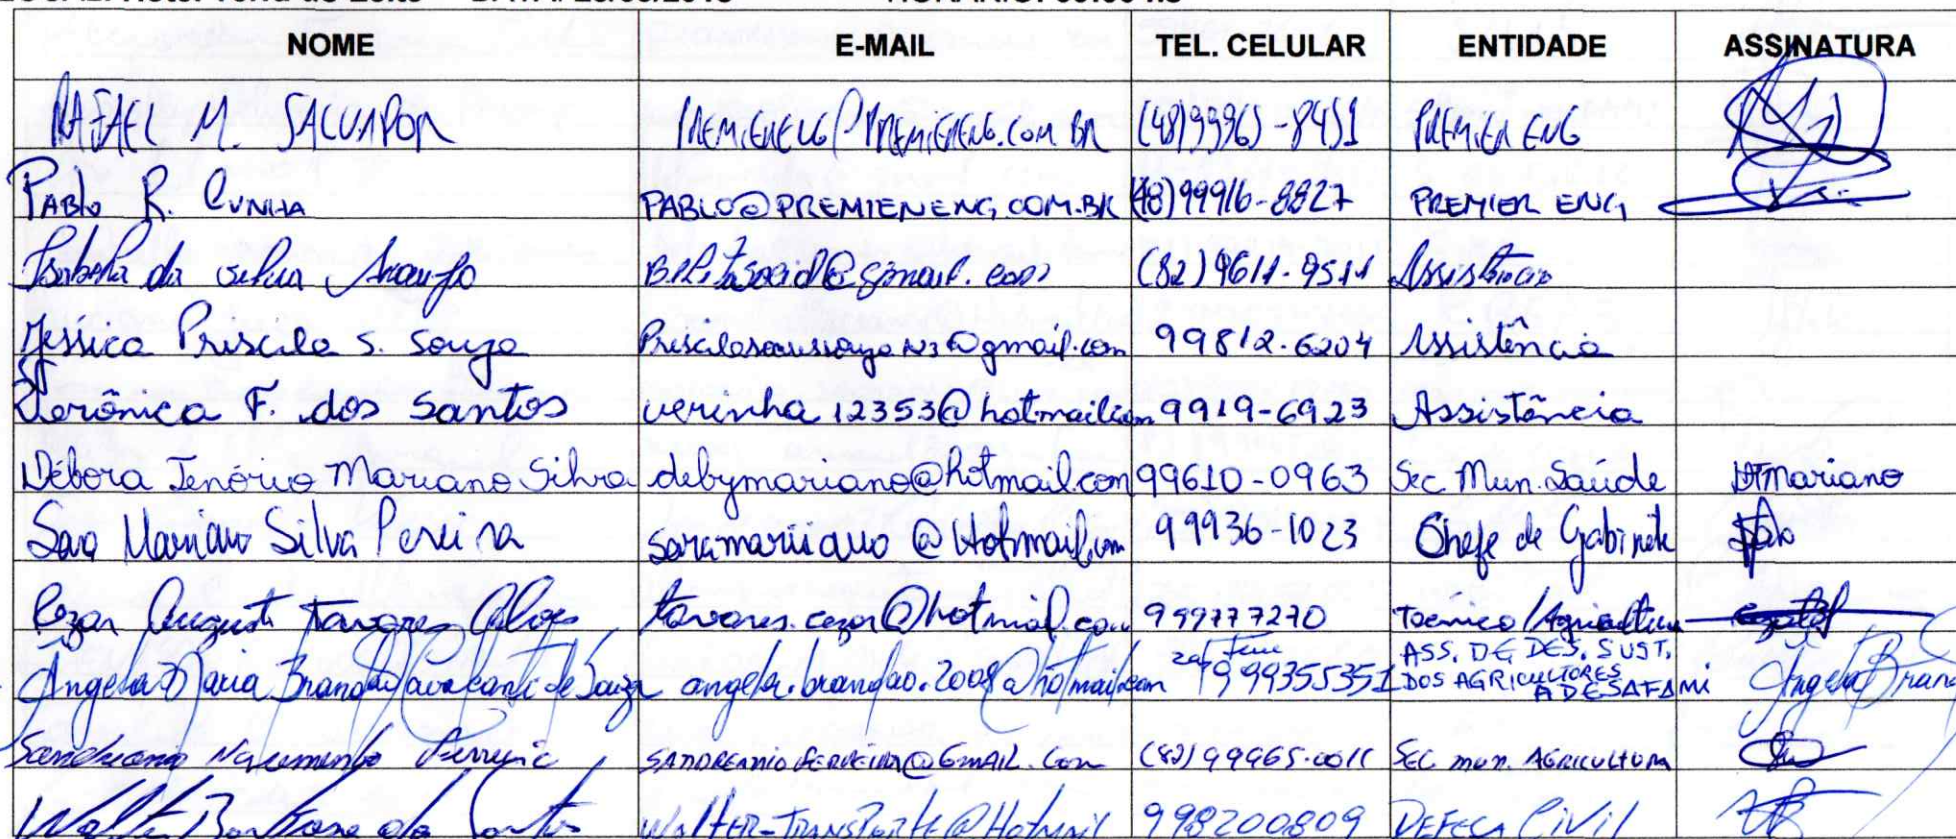 NOME E-MAIL TEL. CELULAR ENTIDADE ASSINATURA
RAFAEL M. SALVADOR (48)99963-8451 PREMIER ENG
PABLO R. CUNHA PABLO@PREMIERENG.COM.BR (48)99916-8827 PREMIER ENG
da Silva Araujo @gmail.com (82)9611-9511 Assistência
Jéssica Priscila S. Souza @gmail.com 99812-6204 Assistência
Verônica F. dos Santos verinha12353@hotmail.com 9919-6923 Assistência
Débora Tenório Mariano Silva debymariano@hotmail.com 99610-0963 Sec Mun. Saúde DTMariano
Sara Mariano Silva Pereira saramariiano@hotmail.com 99936-1023 Chefe de Gabinete
Cezar Augusto Tavares Alves tavares.cezar@hotmail.com 999777270 Técnico/Agricultura
Angela Maria Brandão Cavalcante de Souza angela.brandao.2008@hotmail.com 999355351 ASS. DE DES. SUST.
DOS AGRICULTORES
ADESAFAMI Angela Brand
Nascimento Ferreira @GMAIL.COM (82)99665-0011 SEC MUN. AGRICULTURA
Walter Barbosa dos Santos WALTER-TRANSPORTE@Hotmail 998200809 DEFECA CIVIL